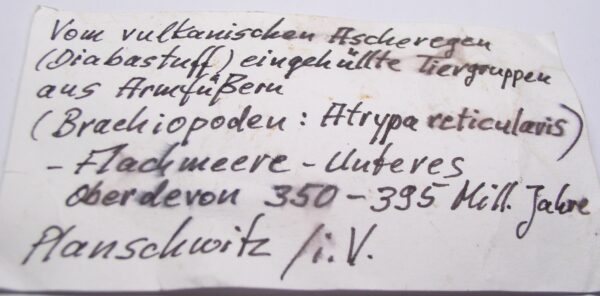 Vom vulkanischen Ascheregen
(Diabastuff) eingehüllte Tiergruppen
aus Armfüßern
(Brachiopoden: Atrypa reticularis)
- Flachmeere - Unteres
Oberdevon 350 - 395 Mill. Jahre
Planschwitz /i.V.